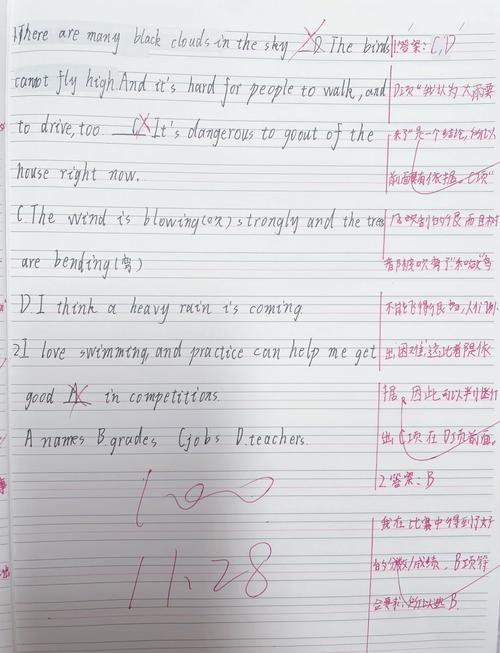 1.There are many black clouds in the sky D The birds
cannot fly high. And it's hard for people to walk, and
to drive, too. C It's dangerous to goout of the
house right now.
C. The wind is blowing(吹) strongly and the trees
are bending(弯)
D. I think a heavy rain is coming.
2.I love swimming, and practice can help me get
good A in competitions.
A names B.grades C jobs D.teachers.
1.答案:C,D
D项"我认为大雨要
来了"是一个结论,所以
前面要有依据。C项"
风吹的很
有而且树
都被吹弯了"和"
不能飞得很高,人们
出"困难"这些都是依
据,因此可以判断
出C项在D项前面。
2.答案:B
我在比赛中得到了好
的分数/成绩,B项符
合要求,所以选B.
100
11.28